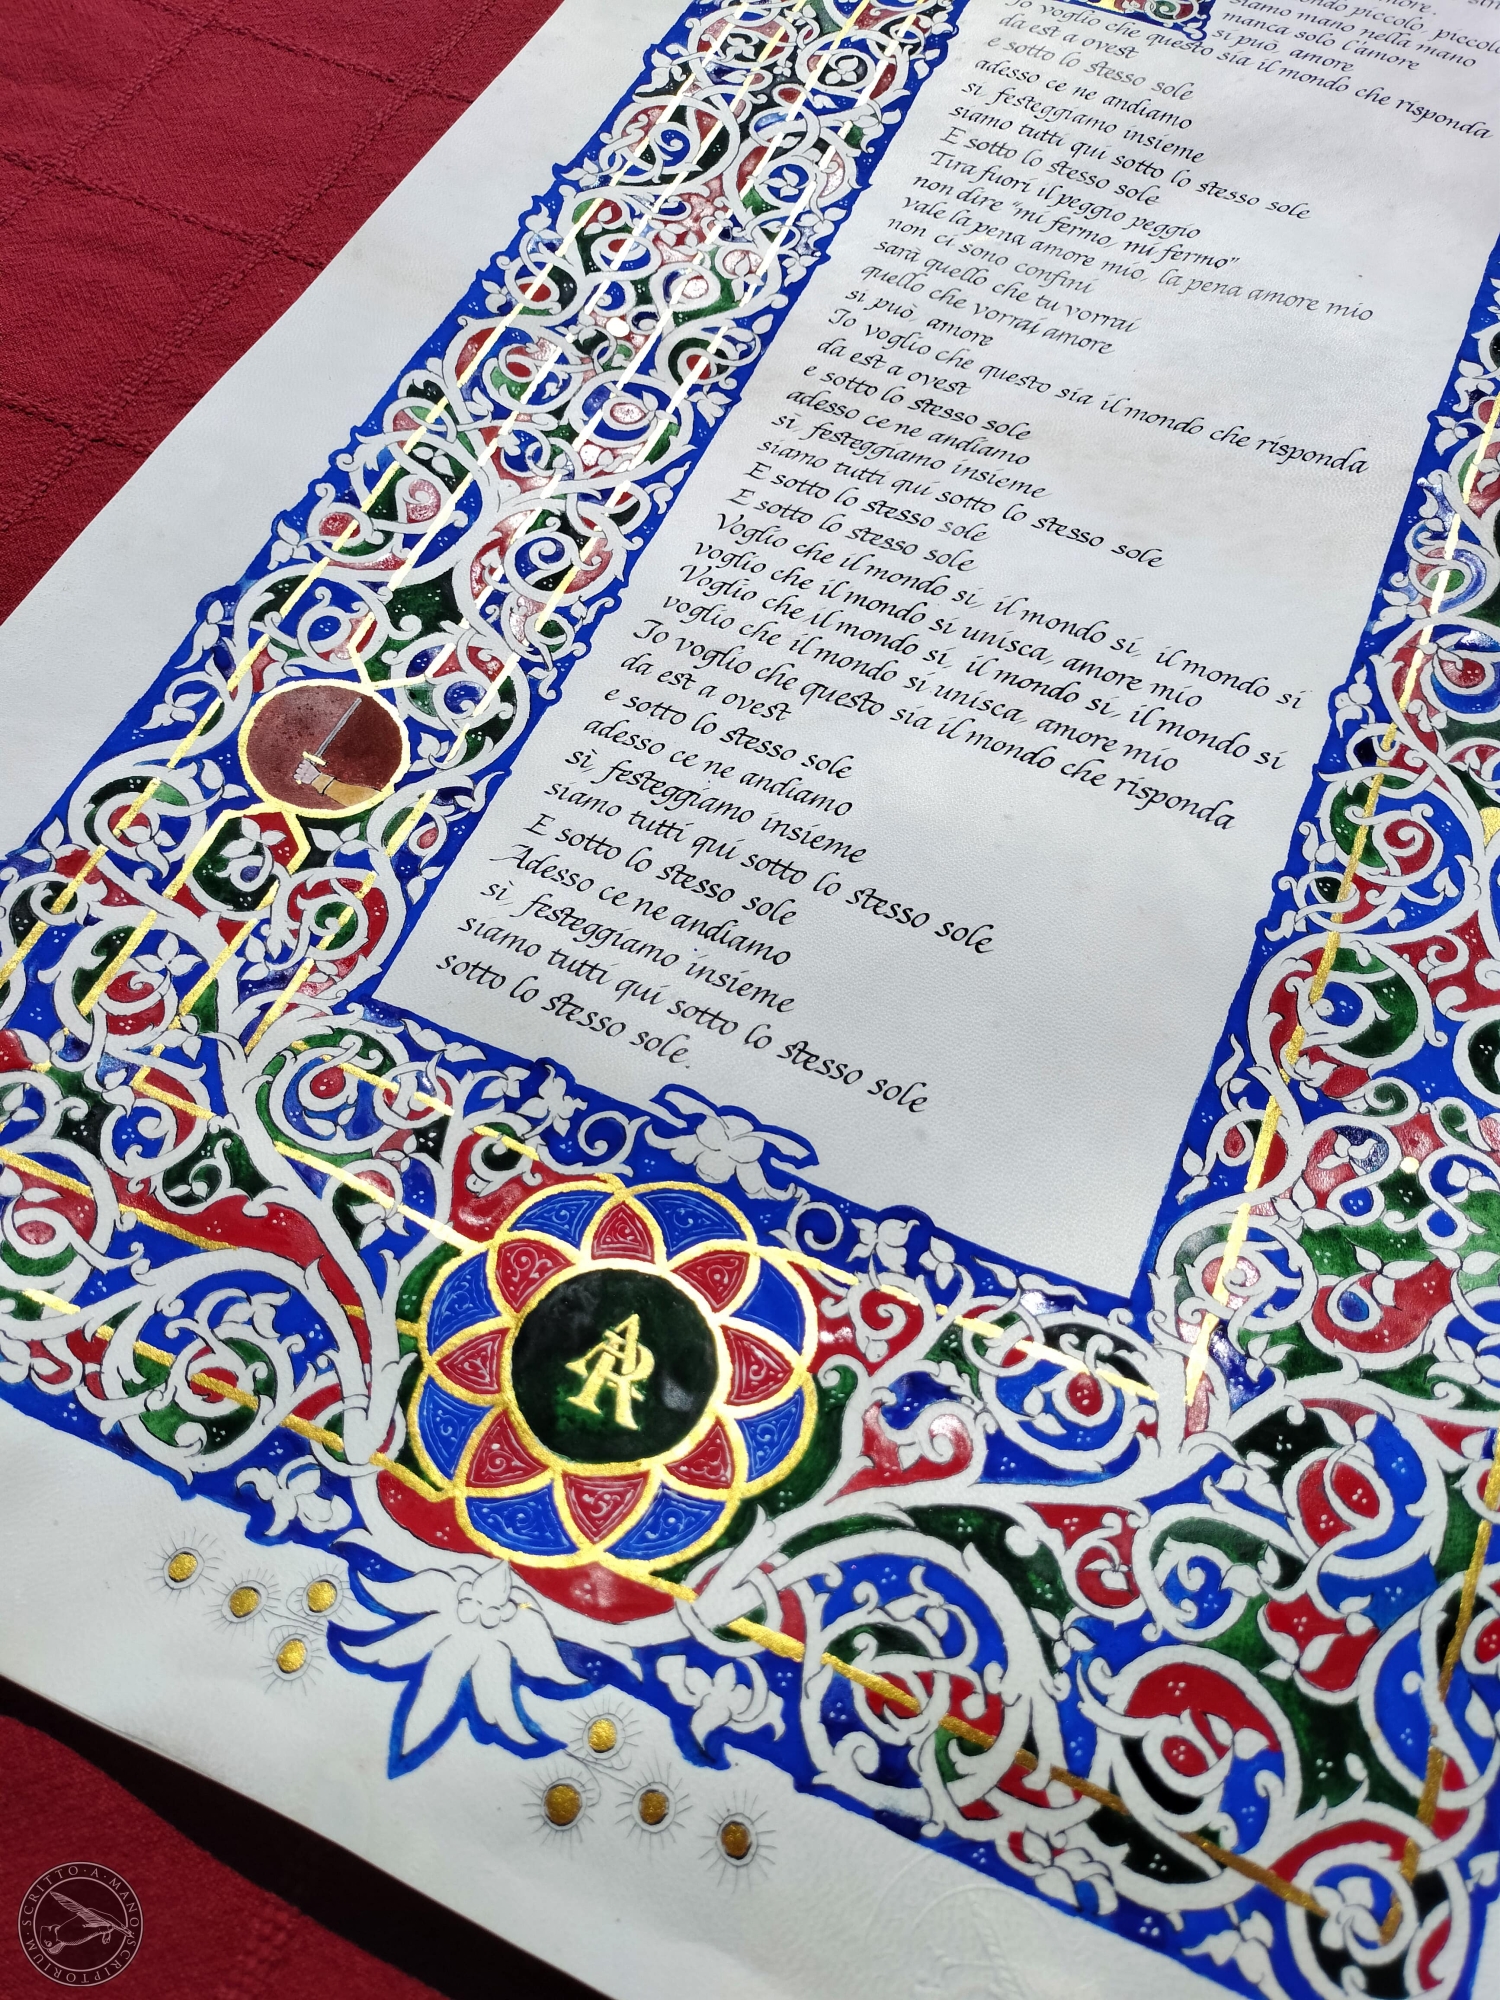 amore.
mondo piccolo, piccolo
siamo mano nella mano
manca solo l'amore
si può, amore
Io voglio che questo sia il mondo che risponda
da est a ovest
e sotto lo stesso sole
adesso ce ne andiamo
sì, festeggiamo insieme
siamo tutti qui sotto lo stesso sole
E sotto lo stesso sole
Tira fuori il peggio peggio
non dire "mi fermo, mi fermo"
vale la pena amore mio, la pena amore mio
non ci sono confini
sarà quello che tu vorrai
quello che vorrai amore
si può, amore
Io voglio che questo sia il mondo che risponda
da est a ovest
e sotto lo stesso sole
adesso ce ne andiamo
sì, festeggiamo insieme
siamo tutti qui sotto lo stesso sole
E sotto lo stesso sole
E sotto lo stesso sole
Voglio che il mondo si, il mondo si, il mondo si
voglio che il mondo si unisca, amore mio
Voglio che il mondo si, il mondo si, il mondo si
voglio che il mondo si unisca, amore mio
Io voglio che questo sia il mondo che risponda
da est a ovest
e sotto lo stesso sole
adesso ce ne andiamo
sì, festeggiamo insieme
siamo tutti qui sotto lo stesso sole
E sotto lo stesso sole
Adesso ce ne andiamo
sì, festeggiamo insieme
siamo tutti qui sotto lo stesso sole
sotto lo stesso sole.
AR
SCRITTO·A·MANO·SCRIPTORIUM